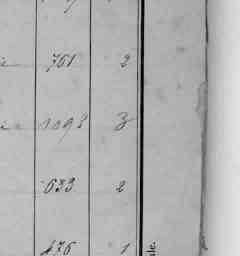 761 2
1098 3
633 2
476 1